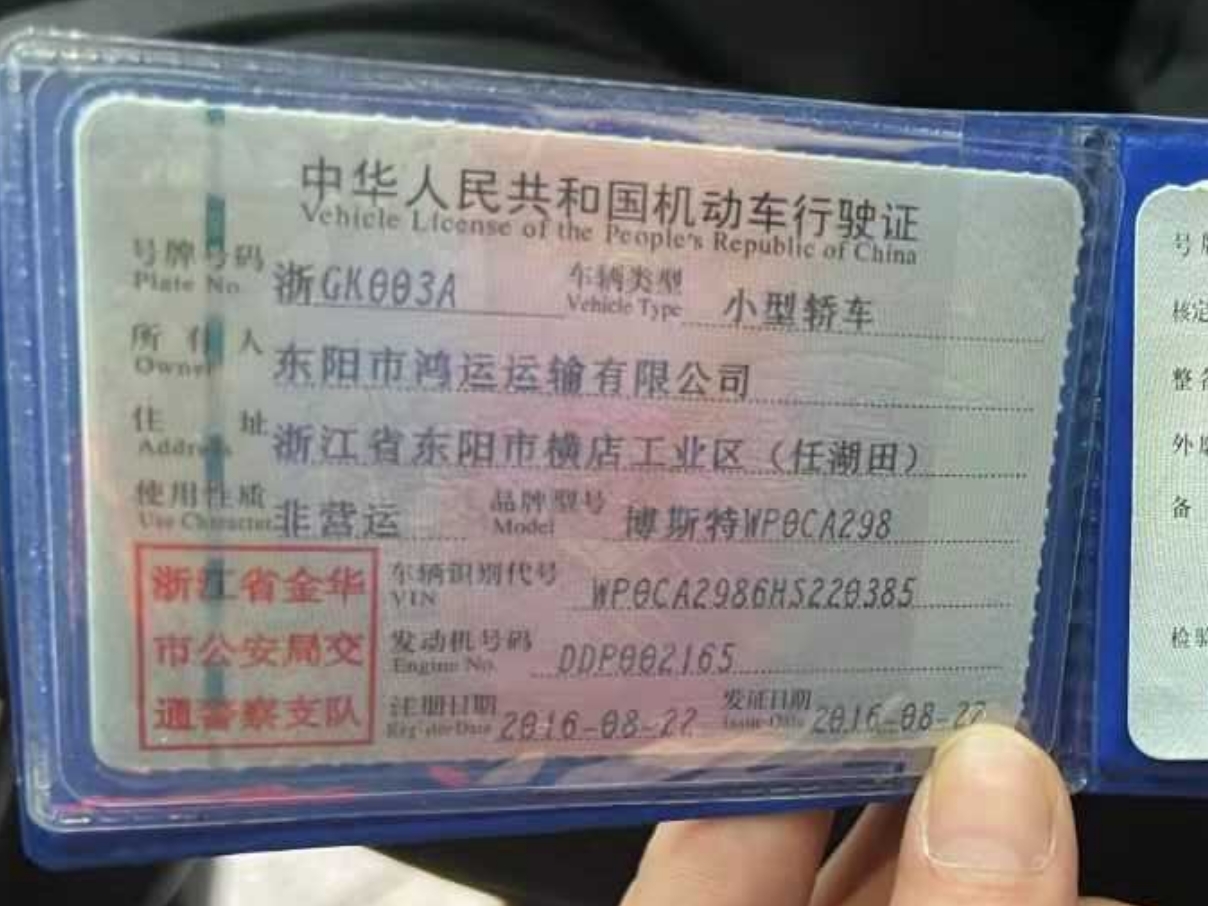 中华人民共和国机动车行驶证
Vehicle License of the People's Republic of China
号牌号码 浙GK003A 车辆类型 小型轿车
Plate No. Vehicle Type
所有人 东阳市鸿运运输有限公司
Owner
住址 浙江省东阳市横店工业区（任湖田）
Address
使用性质 非营运 品牌型号 博斯特WP0CA298
Use Character Model
浙江省金华
市公安局交
通警察支队
车辆识别代号 WP0CA2986HS220385
VIN
发动机号码 DDP002165
Engine No.
注册日期 2016-08-22 发证日期 2016-08-22
Register Date Issue Date
号牌
核定
整备
外廓
备
检验